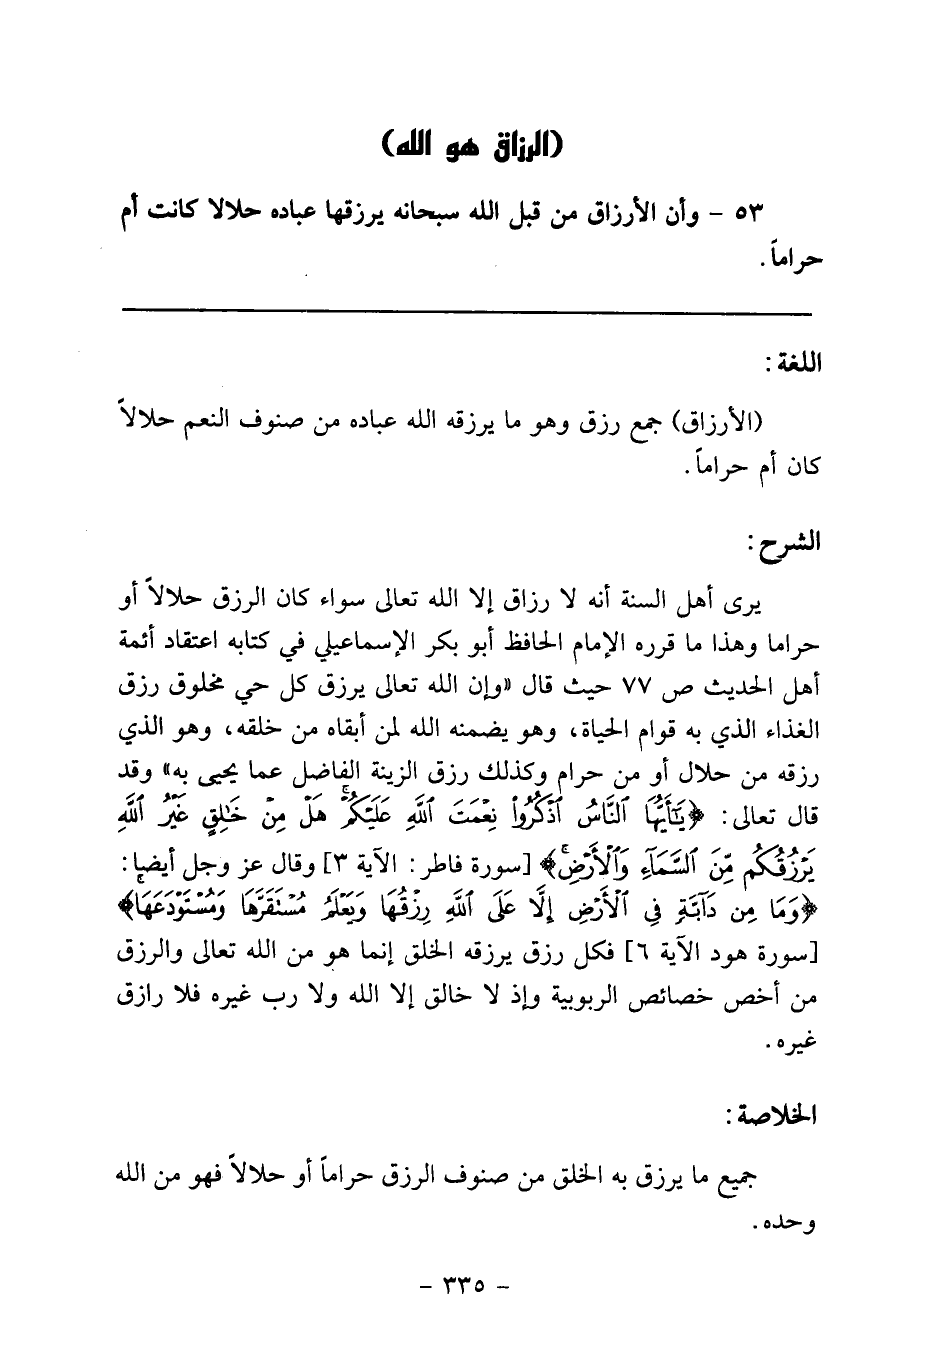 (الرزاق هو الله)
٥٣ - وأن الأرزاق من قبل الله سبحانه يرزقها عباده حلالا كانت أم
حراماً .
اللغة :
(الأرزاق) جمع رزق وهو ما يرزقه الله عباده من صنوف النعم حلالاً
كان أم حراماً .
الشرح :
يرى أهل السنة أنه لا رزاق إلا الله تعالى سواء كان الرزق حلالاً أو
حراما وهذا ما قرره الإمام الحافظ أبو بكر الإسماعيلي في كتابه اعتقاد أئمة
أهل الحديث ص ٧٧ حيث قال «وإن الله تعالى يرزق كل حي مخلوق رزق
الغذاء الذي به قوام الحياة، وهو يضمنه الله لمن أبقاه من خلقه، وهو الذي
رزقه من حلال أو من حرام وكذلك رزق الزينة الفاضل عما يحيى به» وقد
قال تعالى: ﴿يَٰٓأَيُّهَا ٱلنَّاسُ ٱذْكُرُوا۟ نِعْمَتَ ٱللَّهِ عَلَيْكُمْ ۚ هَلْ مِنْ خَٰلِقٍ غَيْرُ ٱللَّهِ
يَرْزُقُكُم مِّنَ ٱلسَّمَآءِ وَٱلْأَرْضِ ۚ﴾ [سورة فاطر: الآية ٣] وقال عز وجل أيضا:
﴿وَمَا مِن دَآبَّةٍ فِى ٱلْأَرْضِ إِلَّا عَلَى ٱللَّهِ رِزْقُهَا وَيَعْلَمُ مُسْتَقَرَّهَا وَمُسْتَوْدَعَهَا ۚ﴾
[سورة هود الآية ٦] فكل رزق يرزقه الخلق إنما هو من الله تعالى والرزق
من أخص خصائص الربوبية وإذ لا خالق إلا الله ولا رب غيره فلا رازق
غيره .
الخلاصة :
جميع ما يرزق به الخلق من صنوف الرزق حراماً أو حلالاً فهو من الله
وحده .
- ٣٣٥ -